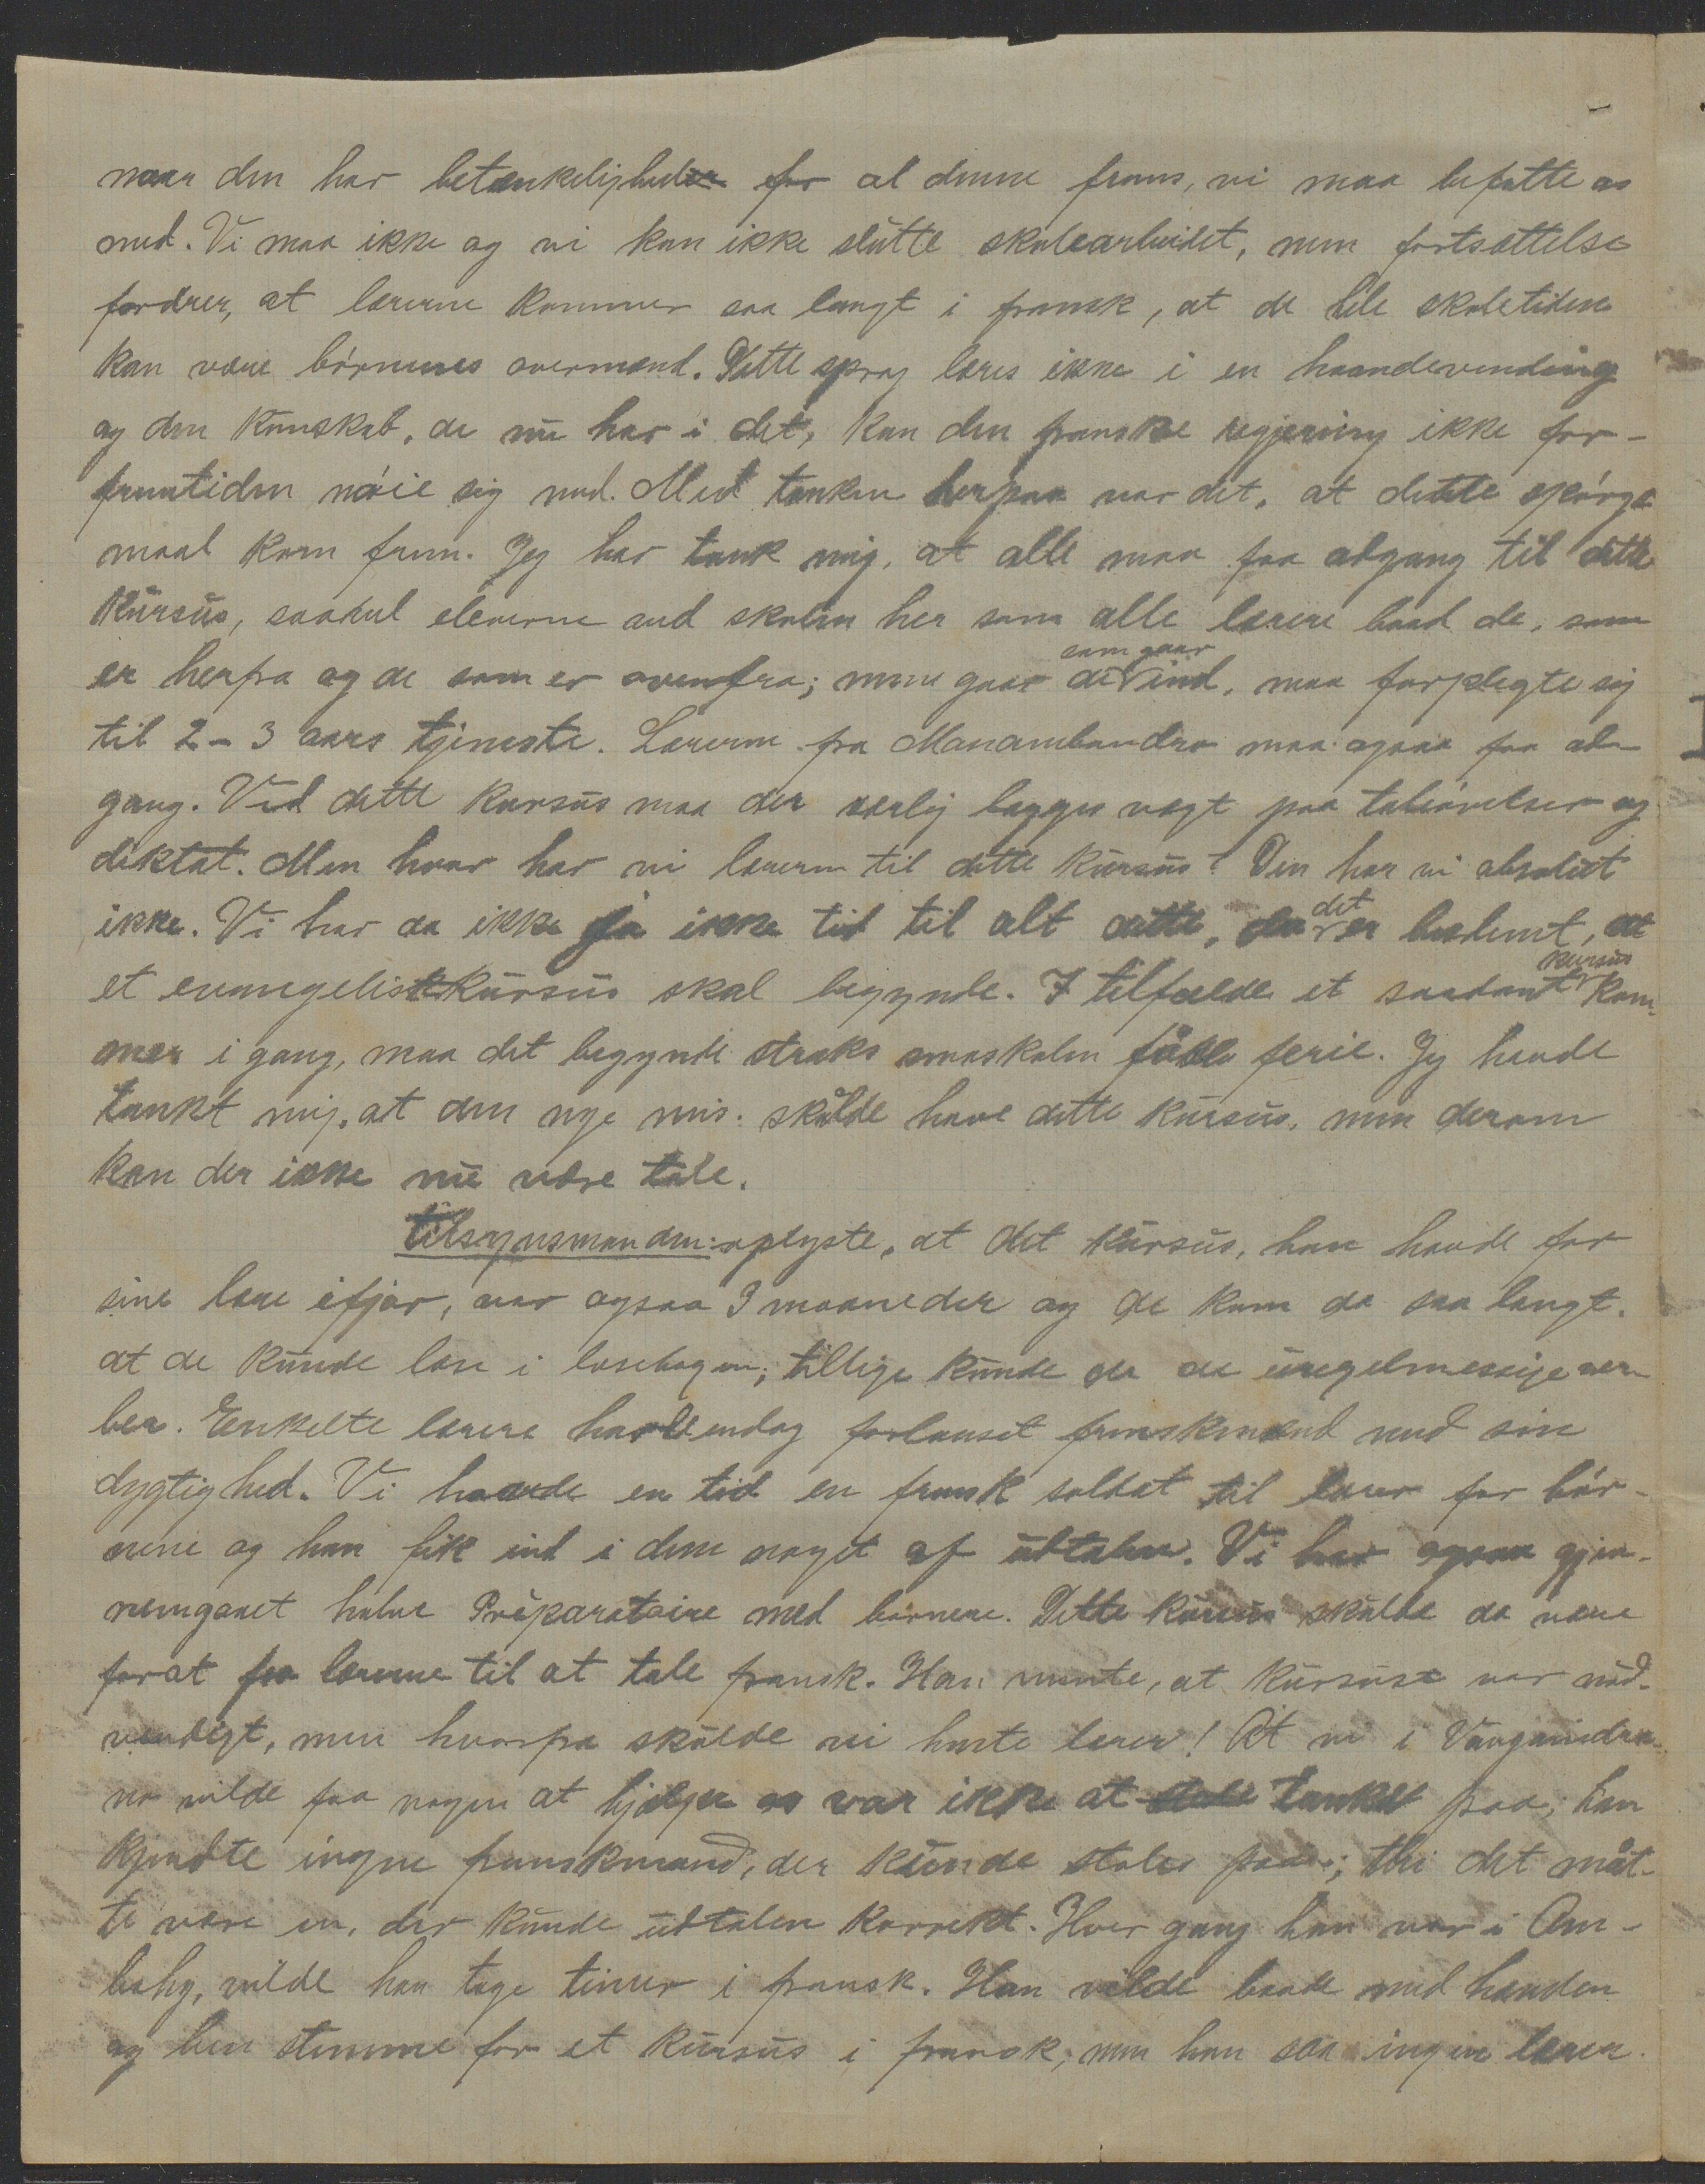 naar den har betænkeligheder for al denne frans, vi maa befatte os
med. Vi maa ikke og vi kan ikke slutte skolearbeidet, men fortsættelse
fordrer, at lærerne kommer saa langt i fransk, at de hele skoletiden
kan være børnenes overmænd. Dette sprog læres ikke i en haandevending
og den kunskab, de nu har i det, kan den franske regjering ikke for-
fremtiden nøie sig med. Med tanken herpaa var det, at dette spørgs
maal kom frem. Jeg har tænk mig, at alle maa faa adgang til dette
kursus, saavel eleverne ved skolen her som alle lærere baad de, som
er herfra og de som er ovenfra; men gaar de som gaar ind, maa forplegte sig
til 2-3 aars tjeneste. Lærerne fra Manambondro maa ogsaa faa ad-
gang. Ved dette kursus maa der særlig lægges vegt paa taleøvelser og
diktat. Men hvor har vi læreren til dette kursus? Den har vi absolut
ikke. Vi har da ikke ja ikke tid til alt dette, da det er bestemt, at
et evangelistkursus skal begynde. I tilfælde et saadant kursus kom-
mer i gang, maa det begynde straks smaskolen får ferie. Jeg havde
tænkt mig, at den nye mis: skulde have dette kursus, men derom
kan der ikke nu være tale.
Tilsynsmanden: oplyste, at det kursus, han havde for
sine lære ifjor, var ogsaa 3 maaneder og de kom da saa langt.
at de kunde læse i læsebogen; tillige kunde de de uregelmessige ver-
ber. Enkelte lærere har endog forbauset franskmænd med sin
dygtighed. Vi havde en tid en fransk soldat til lærer for bør-
nene og han fik ind i dem noget af udtalen. Vi har ogsaa gjen-
nemgaaet halve Préparatoire med børnene. Dette kursus skulde da være
forat faa lærerne til at tale fransk. Han mente, at kursuset var nød-
vendigt, men hvorfra skulde vi hente lærer! At vi i Vangaindra-
no vilde faa nogen at hjælpe os var ikke at tænke paa; han
kjendte ingen franskmand, der kunde stoles paa; thi det måt-
te være en, der kunde udtalen korrekt. Hver gang han var i Am-
bohy, vilde han tage timer i fransk. Han vilde baade med haanden
og ben stemme for et kursus i fransk; men han saa ingen lærer.